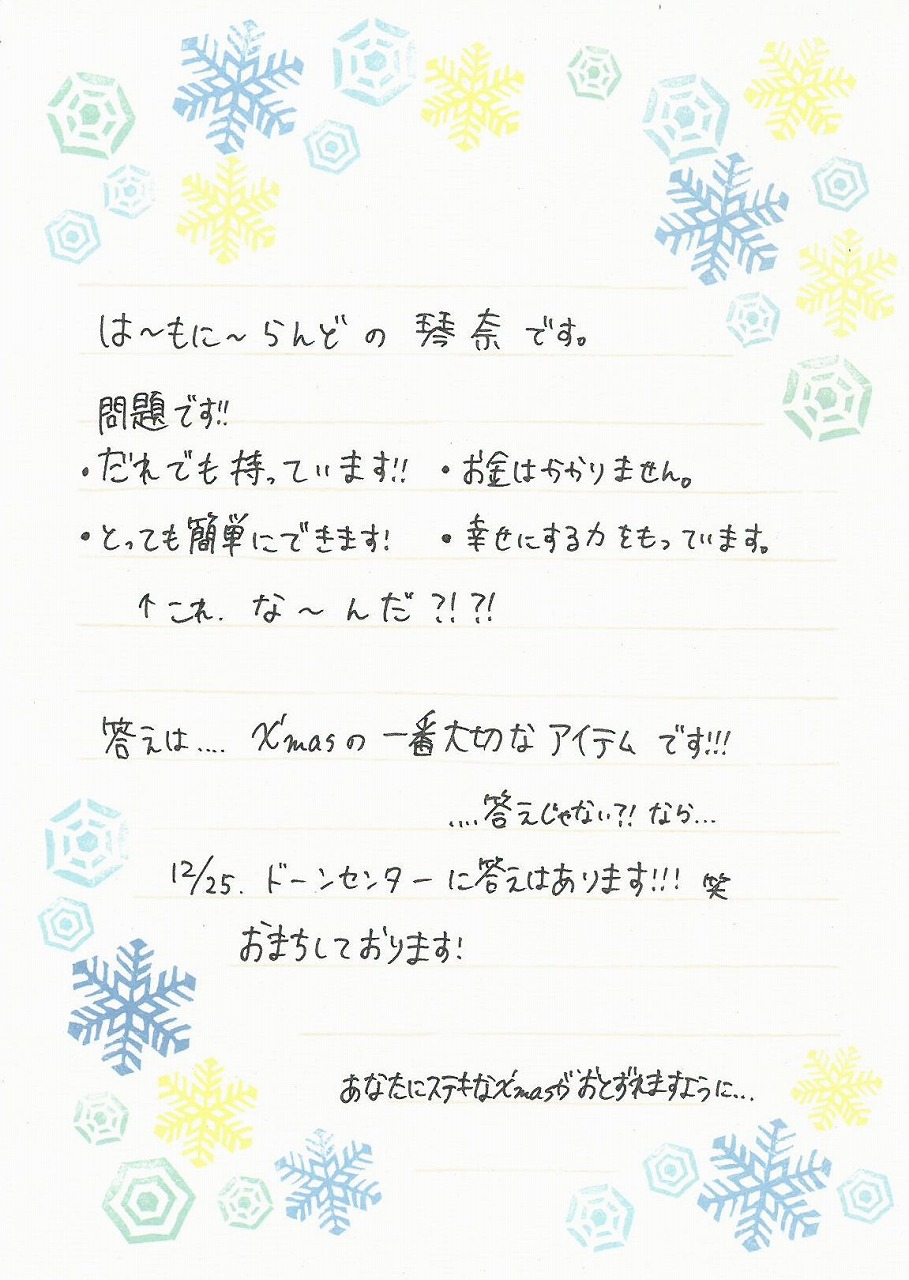 は～もに～らんどの 琴奈です。
問題です!!
・だれでも持っています!! ・お金はかかりません。
・とっても簡単にできます! ・幸せにする力をもっています。
↑これ. な～んだ?!?!
答えは.... X'masの一番大切なアイテムです!!!
....答えじゃない?! なら...
12/25. ドーンセンターに答えはあります!!! 笑
おまちしております!
あなたにステキなX'masがおとずれますように...